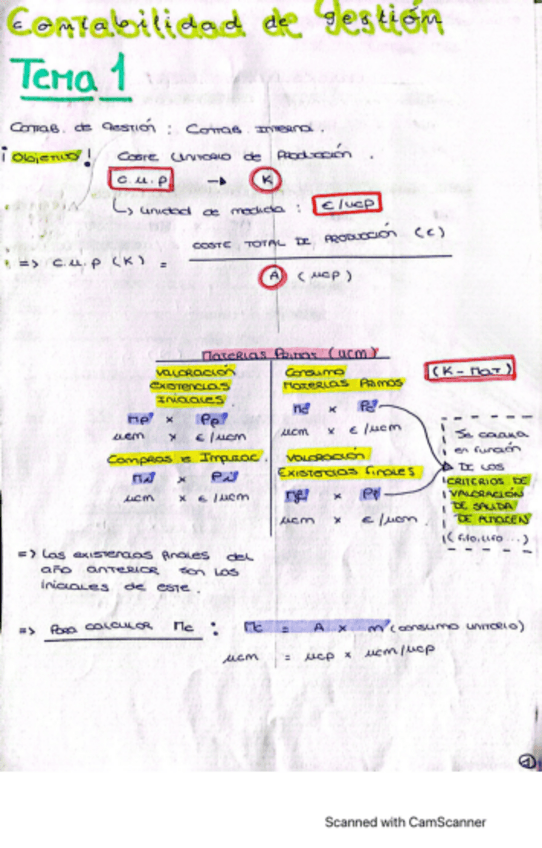 Contabilidad de gestión
Tema 1
Contab. de Gestión : Contab. Interna.
¡ Objetivo ! Coste unitario de Producción.
c.u.p → K
↳ unidad de medida : €/ucp
=> c.u.p (K) = COSTE TOTAL DE PRODUCCIÓN (€)
A (ucp)
Materias Primas (ucm)
VALORACIÓN
EXISTENCIAS
INICIALES
x
ucm x €/ucm
Compras e Impuac.
x
ucm x €/ucm
Consumo
Materias Primas
Mc x Pc
ucm x €/ucm
VALORACIÓN
Existencias finales
Mf x Pf
ucm x €/ucm.
(K - Mat)
Se calcula
en función
DE LOS
CRITERIOS DE
VALORACIÓN
DE SALIDA
DE ALMACÉN
(fifo, lifo ...)
=> Las existencias finales del
año anterior son las
iniciales de este.
=> Para calcular Mc : Mc = A x m (consumo unitario)
ucm = ucp x ucm/ucp
1
Scanned with CamScanner